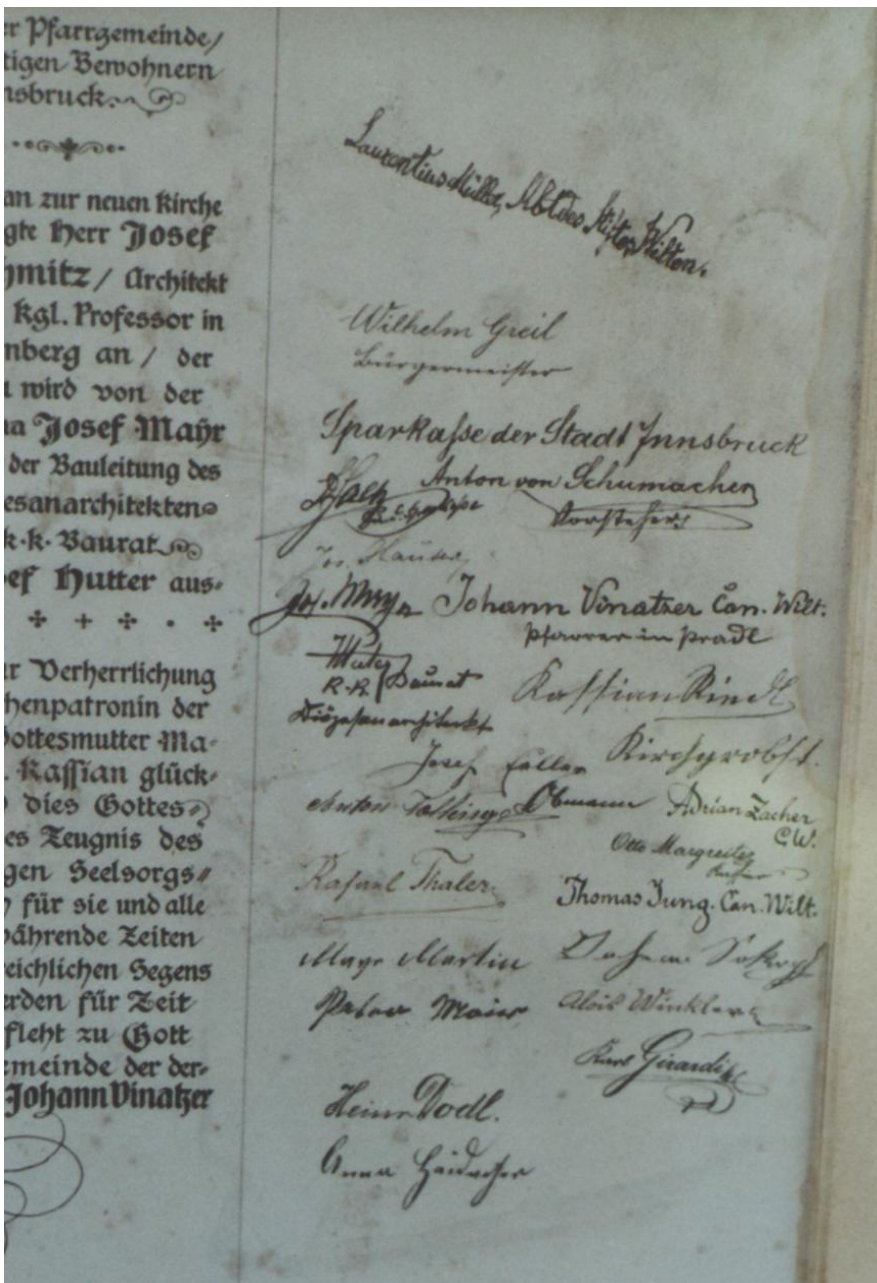 r Pfarrgemeinde/
tigen Bewohnern
nsbruck.
an zur neuen Kirche
gte Herr Josef
hmitz / Architekt
kgl. Professor in
nberg an / der
u wird von der
ma Josef Mayr
der Bauleitung des
esanarchitekten
k.k. Baurat
ef Hutter aus-
ur Verherrlichung
henpatronin der
Gottesmutter Ma-
. Kassian glück-
dies Gottes
es Zeugnis des
gen Seelsorgs
für sie und alle
währende Zeiten
reichlichen Segens
erden für Zeit
fleht zu Gott
emeinde der der-
Johann Vinatzer
Laurentius Müller, Abt des Stiftes Wilten.
Wilhelm Greil
Bürgermeister
Sparkasse der Stadt Innsbruck
Anton von Schumacher
Vorsteher
Jos. Mayr
Johann Vinatzer Can. Wilt.
Pfarrer in Pradl
k.k. Baurat
Diözesanarchitekt
Kassian Riedl
Kirchprobst.
Josef
Anton Obmann
Adrian Zacher
C.W.
Otto Margreiter
Rafael Thaler
Thomas Jung. Can. Wilt.
Mayr Martin
Peter Maier
Alois Winkler
Karl Girardi
Heinr. Dodl.
Anna Haidacher